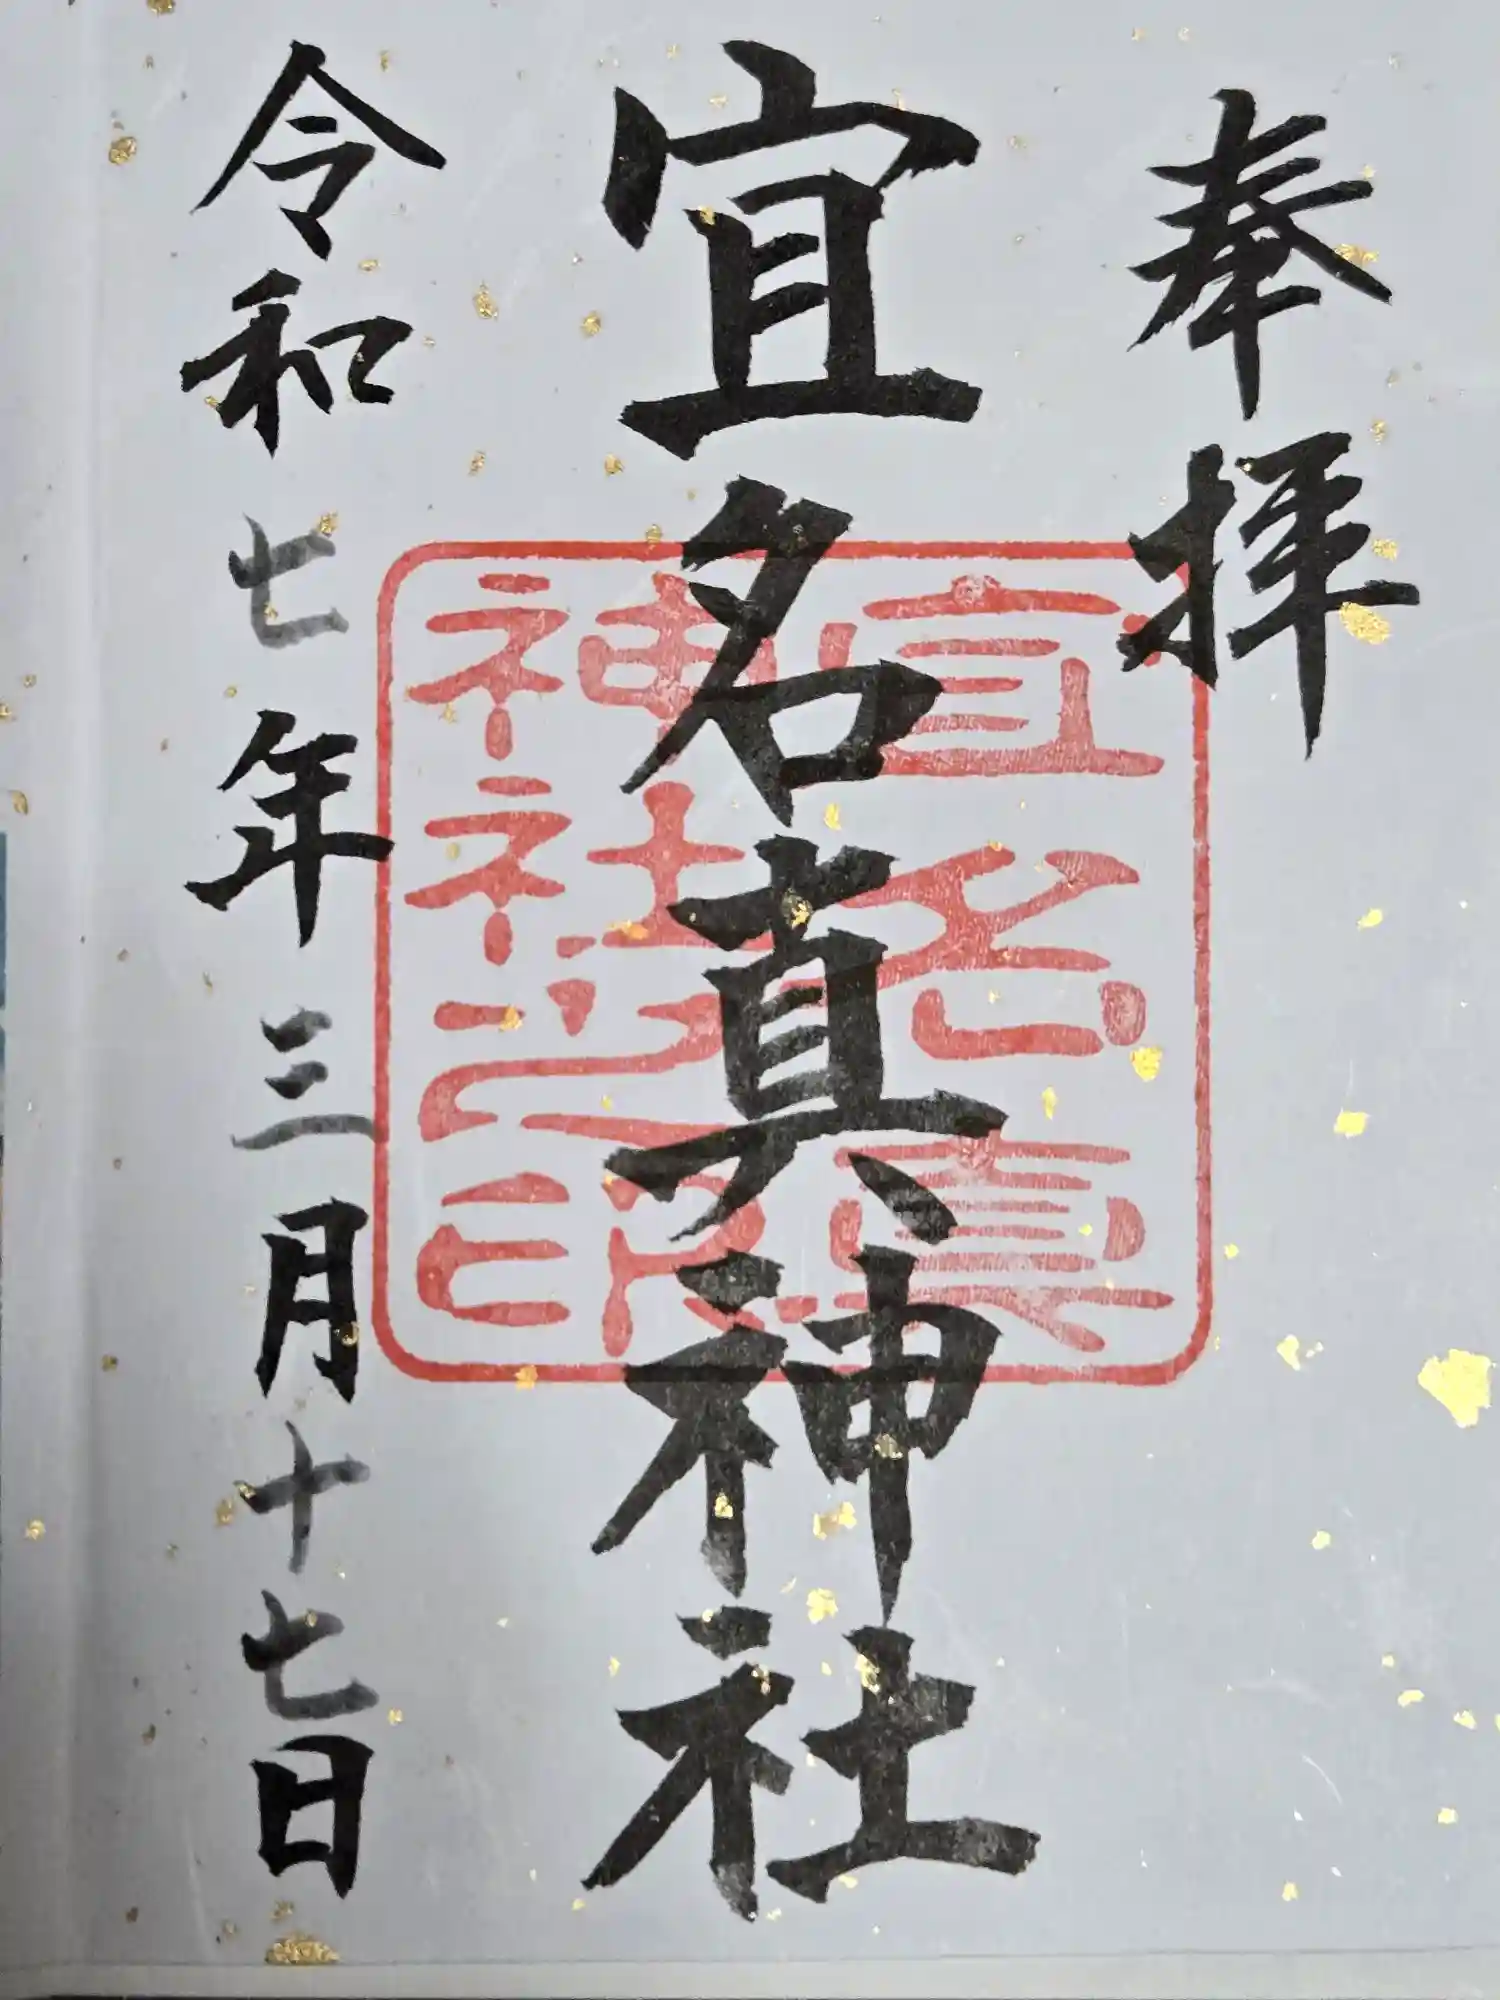 奉拝
宜名真神社
令和七年三月十七日
宜名真
神社之印